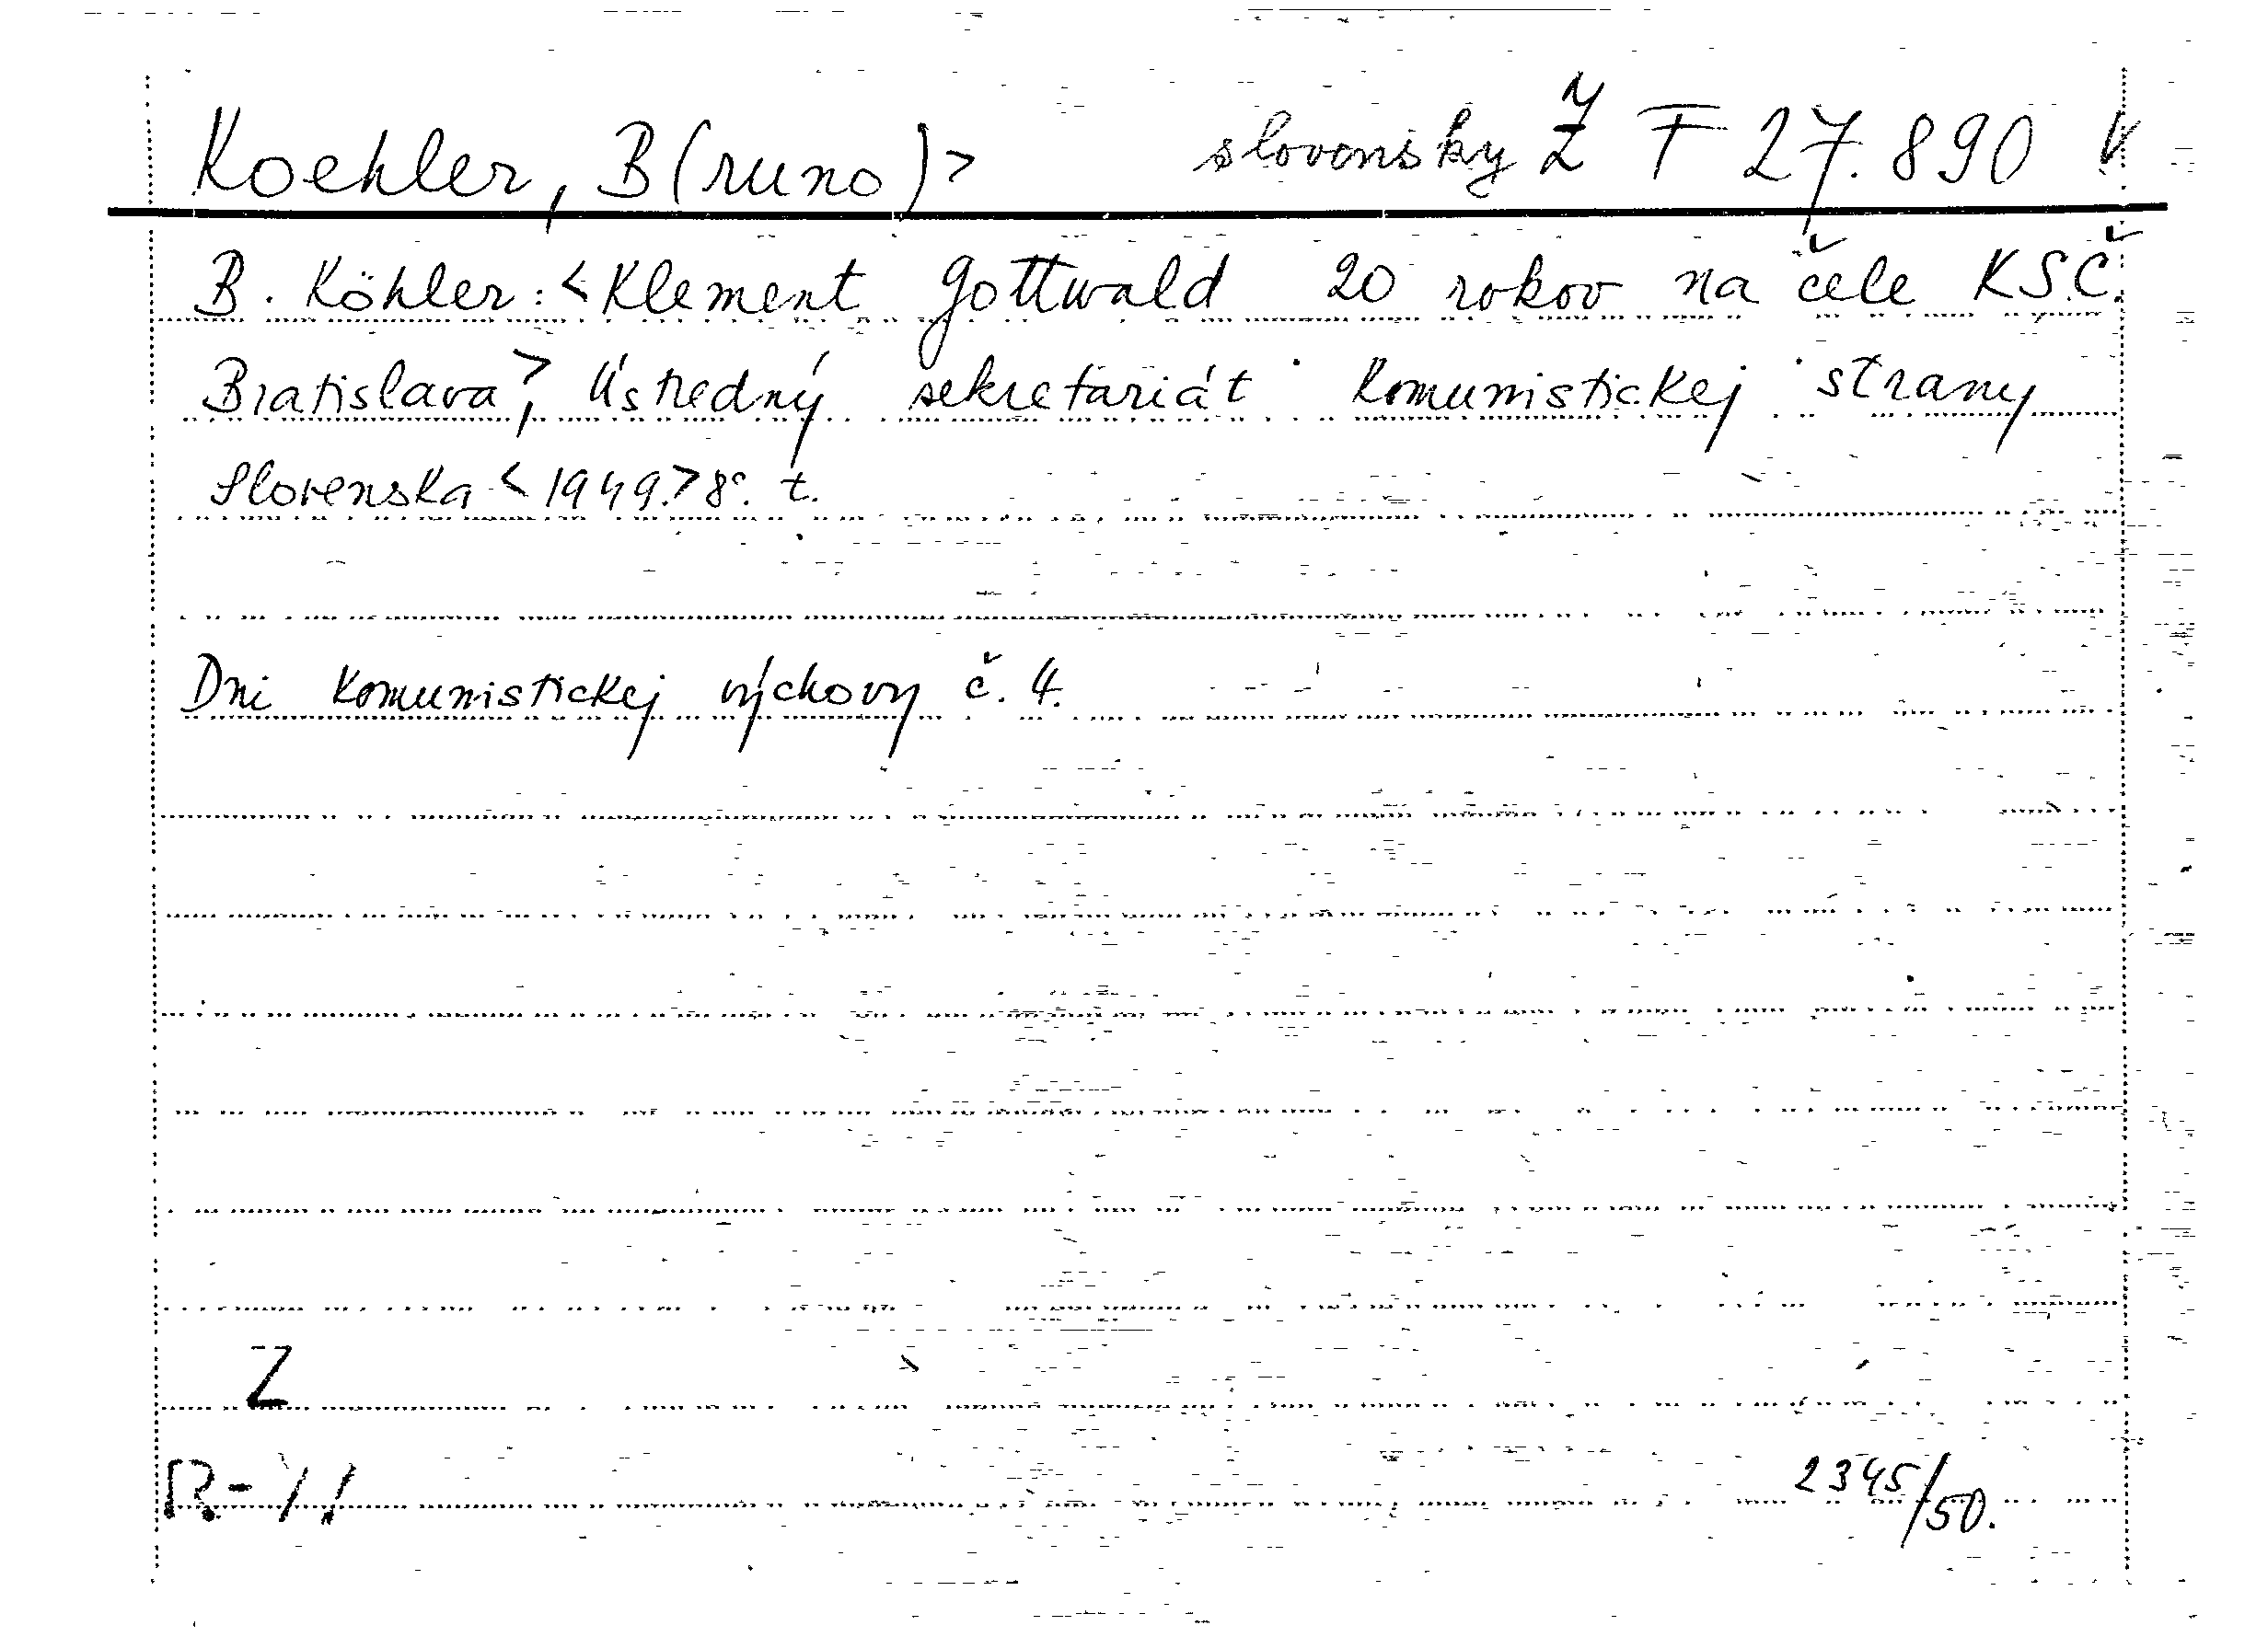 Koehler, B(runo)> slovensky Ž F 27.890 V
B. Köhler: <Klement Gottwald 20 rokov na čele KSČ.
Bratislava>, Ústredný sekretariát Komunistickej strany
Slovenska <1949.> 8°. t.
Dni Komunistickej výchovy č. 4.
Z
R-11
2345/50.